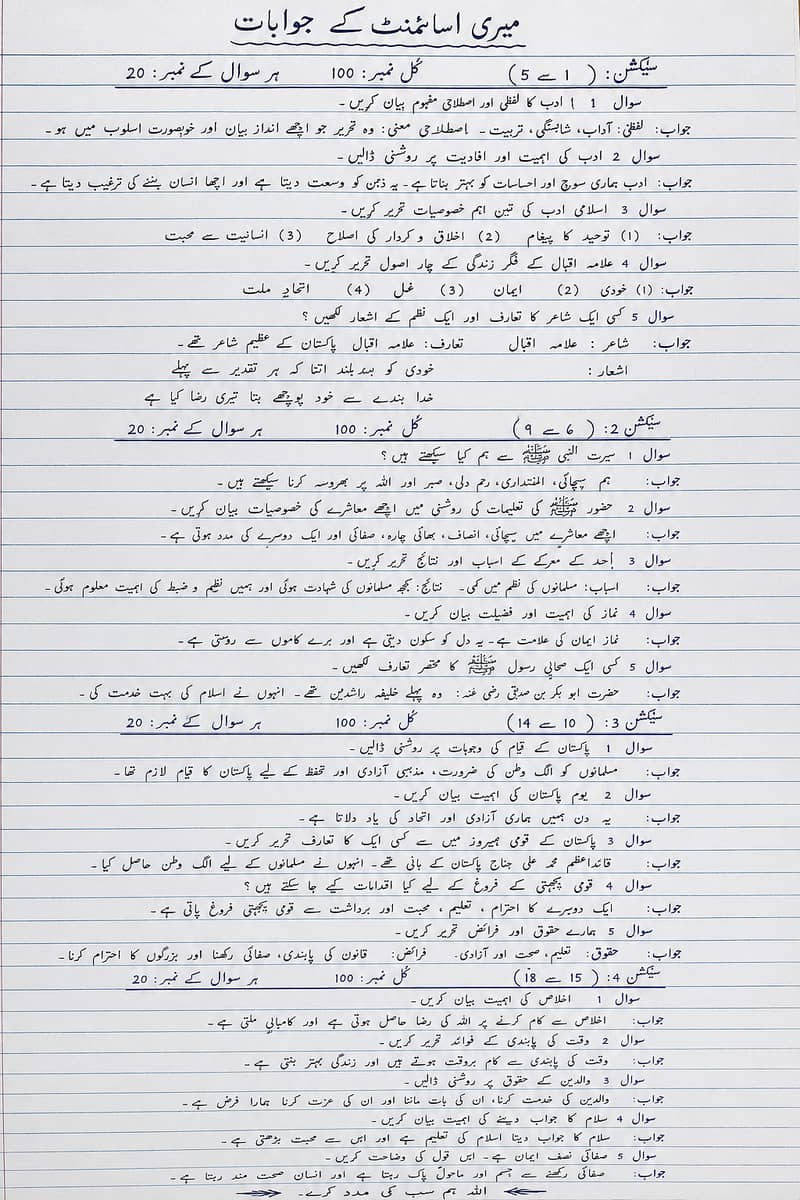 میری اسائمنٹ کے جوابات
سیکشن: ( 1 سے 5 ) کُل نمبر: 100 ہر سوال کے نمبر: 20
سوال 1 ادب کا لفظی اور اصطلاحی مفہوم بیان کریں ۔
جواب: لفظی: آداب، شائستگی، تربیت ۔ اصطلاحی معنی: وہ تحریر جو اچھے انداز بیان اور خوبصورت اسلوب میں ہو ۔
سوال 2 ادب کی اہمیت اور افادیت پر روشنی ڈالیں ۔
جواب: ادب ہماری سوچ اور احساسات کو بہتر بناتا ہے ۔ یہ ذہن کو وسعت دیتا ہے اور اچھا انسان بننے کی ترغیب دیتا ہے ۔
سوال 3 اسلامی ادب کی تین اہم خصوصیات تحریر کریں ۔
جواب: (1) توحید کا پیغام (2) اخلاق و کردار کی اصلاح (3) انسانیت سے محبت
سوال 4 علامہ اقبال کے فکر زندگی کے چار اصول تحریر کریں ۔
جواب: (1) خودی (2) ایمان (3) عمل (4) اتحادِ ملت
سوال 5 کسی ایک شاعر کا تعارف اور ایک نظم کے اشعار لکھیں ؟
جواب: شاعر : علامہ اقبال تعارف: علامہ اقبال پاکستان کے عظیم شاعر تھے ۔
اشعار : خودی کو بلند اتنا کہ ہر تقدیر سے پہلے
خدا بندے سے خود پوچھے بتا تیری رضا کیا ہے
سیکشن 2: ( ۶ سے ۹ ) کُل نمبر: 100 ہر سوال کے نمبر: 20
سوال 1 سیرت النبی ﷺ سے ہم کیا سیکھتے ہیں ؟
جواب: ہم سچائی، رحم دلی، صبر اور اللہ پر بھروسہ کرنا سیکھتے ہیں ۔
سوال 2 حضور ﷺ کی تعلیمات کی روشنی میں اچھے معاشرے کی خصوصیات بیان کریں ۔
جواب: اچھے معاشرے میں سچائی، انصاف، بھائی چارہ، صفائی اور ایک دوسرے کی مدد ہوتی ہے ۔
سوال 3 اُحد کے معرکے کے اسباب اور نتائج تحریر کریں ۔
جواب: اسباب: مسلمانوں کی نظم میں کمی ۔ نتائج: کچھ مسلمانوں کی شہادت ہوئی اور ہمیں نظم و ضبط کی اہمیت معلوم ہوئی ۔
سوال 4 نماز کی اہمیت اور فضیلت بیان کریں ۔
جواب: نماز ایمان کی علامت ہے ۔ یہ دل کو سکون دیتی ہے اور برے کاموں سے روکتی ہے ۔
سوال 5 کسی ایک صحابی رسول ﷺ کا مختصر تعارف لکھیں ۔
جواب: حضرت ابو بکر بن صدیق رضی عنہ: وہ پہلے خلیفہ راشدین تھے ۔ انہوں نے اسلام کی بہت خدمت کی ۔
سیکشن 3: ( 10 سے 14 ) کُل نمبر: 100 ہر سوال کے نمبر: 20
سوال 1 پاکستان کے قیام کی وجوہات پر روشنی ڈالیں ۔
جواب: مسلمانوں کو الگ وطن کی ضرورت، مذہبی آزادی اور تحفظ کے لیے پاکستان کا قیام لازم تھا ۔
سوال 2 یوم پاکستان کی اہمیت بیان کریں ۔
جواب: یہ دن ہمیں ہماری آزادی اور اتحاد کی یاد دلاتا ہے ۔
سوال 3 پاکستان کے قومی ہیروز میں سے کسی ایک کا تعارف تحریر کریں ۔
جواب: قائداعظم محمد علی جناح پاکستان کے بانی تھے ۔ انہوں نے مسلمانوں کے لیے الگ وطن حاصل کیا ۔
سوال 4 قومی یکجہتی کے فروغ کے لیے کیا اقدامات کیے جا سکتے ہیں ؟
جواب: ایک دوسرے کا احترام ، تعلیم ، محبت اور برداشت سے قومی یکجہتی فروغ پاتی ہے ۔
سوال 5 ہمارے حقوق اور فرائض تحریر کریں ۔
جواب: حقوق: تعلیم، صحت اور آزادی۔ فرائض: قانون کی پابندی، صفائی رکھنا اور بزرگوں کا احترام کرنا ۔
سیکشن 4: ( 15 سے 18 ) کُل نمبر: 100 ہر سوال کے نمبر: 20
سوال 1 اخلاص کی اہمیت بیان کریں ۔
جواب: اخلاص سے کام کرنے پر اللہ کی رضا حاصل ہوتی ہے اور کامیابی ملتی ہے ۔
سوال 2 وقت کی پابندی کے فوائد تحریر کریں ۔
جواب: وقت کی پابندی سے کام بروقت ہوتے ہیں اور زندگی بہتر بنتی ہے ۔
سوال 3 والدین کے حقوق پر روشنی ڈالیں ۔
جواب: والدین کی خدمت کرنا، ان کی بات ماننا اور ان کی عزت کرنا ہمارا فرض ہے ۔
سوال 4 سلام کا جواب دینے کی اہمیت بیان کریں ۔
جواب: سلام کا جواب دینا اسلام کی تعلیم ہے اور اس سے محبت بڑھتی ہے ۔
سوال 5 صفائی نصف ایمان ہے ۔ اس قول کی وضاحت کریں ۔
جواب: صفائی رکھنے سے جسم اور ماحول پاک رہتا ہے اور انسان صحت مند رہتا ہے ۔
اللہ ہم سب کی مدد کرے ۔